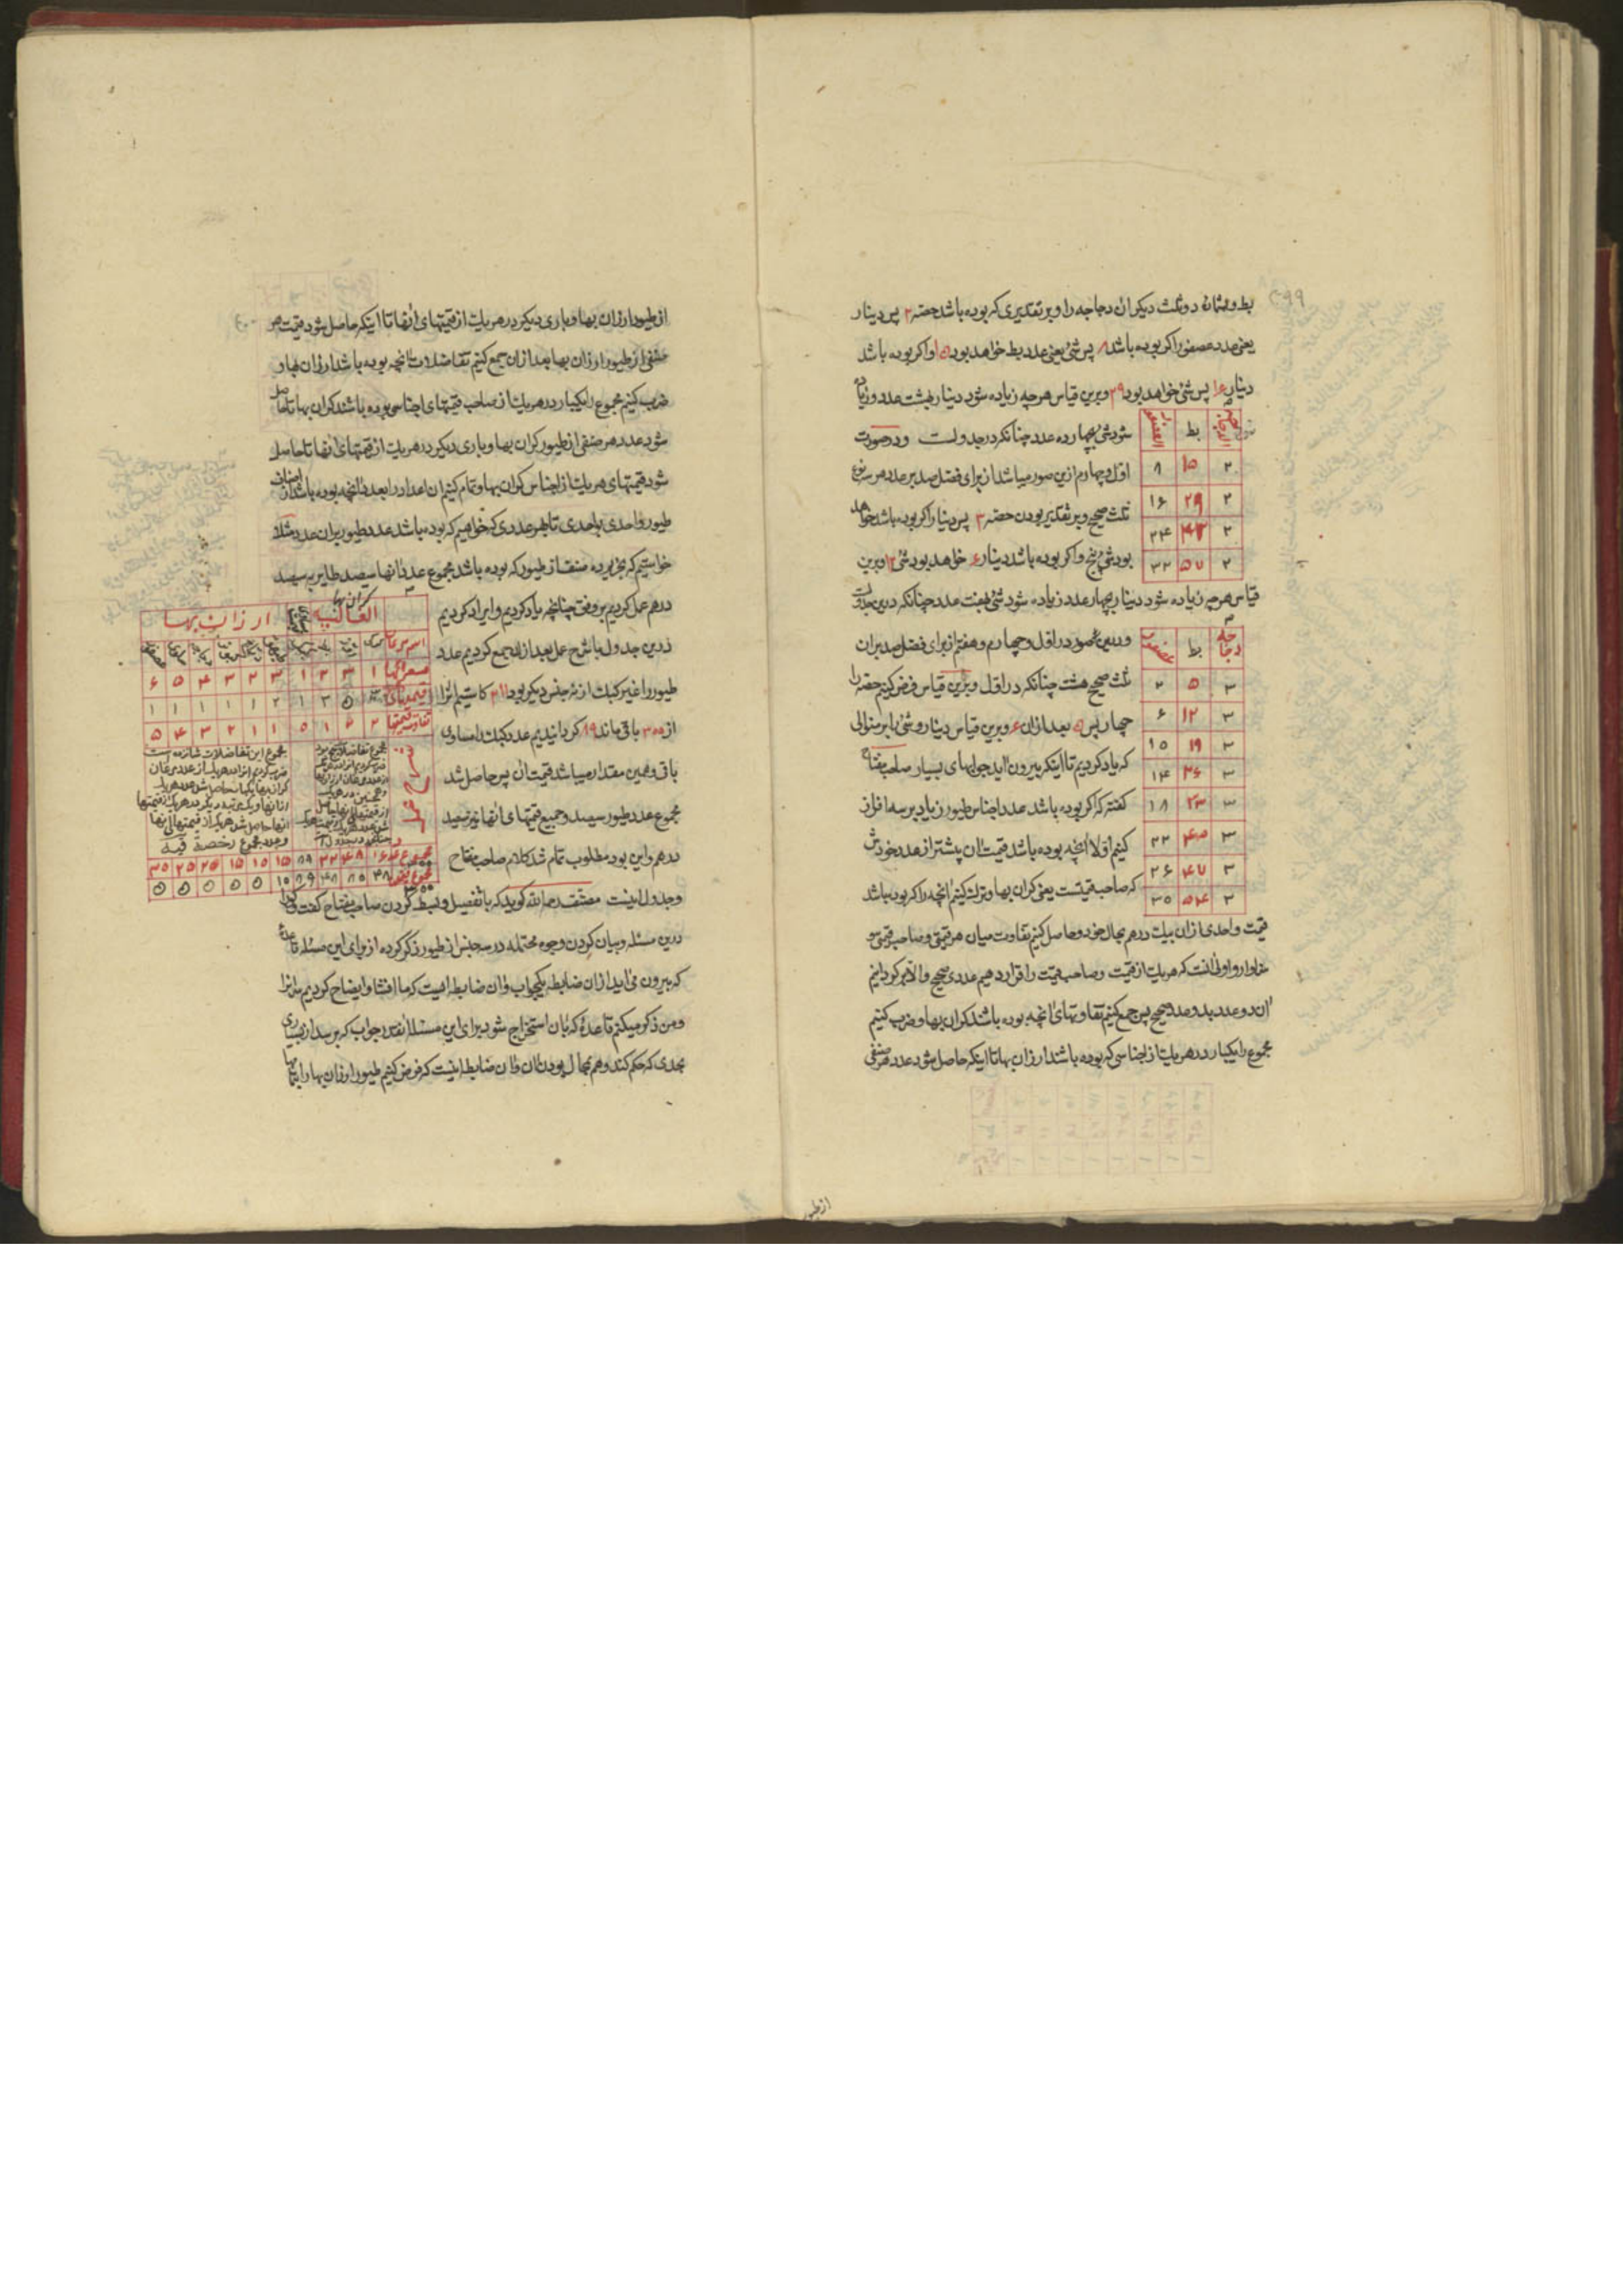 ۳۹۹
بط و بمثانه دو ثلث دیکر ان دجاجه را و بر تقدیری که بوده باشد حصه ۲ پس دینار
یعنی عدد عصفور اکر بوده باشد ۸ پس شئ یعنی عدد بط خواهد بود ۱۵ و اکر بوده باشد
دینار ۱۶ پس شئ خواهد بود ۲۹ و برین قیاس هر چه زیاده شود دینار بهشت عدد و زیاده
شود شئ بچهارده عدد چنانکه در جدولست و در صورت
اول و چهارم ازین صور میباشد از برای فضل صد بر عدد هر سه نوع
ثلث صحیح و بر تقدیر بودن حصه ۳ پس دینار اکر بوده باشد خواهد
بود شئ پنج و اکر بوده باشد دینار ۶ خواهد بود شئ ۱۲ و برین
الدجاج بط العصفور
۲ ۱۵ ۸
۲ ۲۹ ۱۶
۲ ۴۳ ۲۴
۲ ۵۷ ۳۲
قیاس هر چه زیاده شود دینار بچهار عدد زیاده شود شئ بهفت عدد چنانکه درین جدولست
و درین صور در اول و چهارم و هفتم از برای فضل صد بران
ثلث صحیح هشت چنانکه در اول و برین قیاس فرض کنیم حصه را
چهار پس ۵ بعد ازان ۶ و برین قیاس دینار و شئ را بر منوالی
که یاد کردیم تا اینکه بیرون اید جوابهای بسیار صاحب مفتاح
کفته که اکر بوده باشد عدد اجناس طیور زیاد بر سه افراز
کنیم اولا انچه بوده باشد قیمت ان پیشتر از عدد خودش
که صاحب قیمتست یعنی کران بها و ترک کنیم انچه را که بوده باشد
دجاجه بط عصفور
۳ ۵ ۲
۳ ۱۲ ۶
۳ ۱۹ ۱۰
۳ ۲۶ ۱۴
۳ ۳۳ ۱۸
۳ ۴۰ ۲۲
۳ ۴۷ ۲۶
۳ ۵۴ ۳۰
قیمت واحدی ازان بیک درهم بحال خود و حاصل کنیم تفاوت میان هر قیمتی و صاحب قیمتی و
سزاوار و اولی انست که هر یک از قیمت و صاحب قیمت را قرار دهیم عددی صحیح و الا بکردانیم
ان دو عدد بدو عدد صحیح پس جمع کنیم تفاوتهای انچه بوده باشد کران بها و ضرب کنیم
مجموع را یکبار در هر یک از اجناسی که بوده باشد ارزان بها تا اینکه حاصل شود عدد هر صنفی
از طیور
۴۰۰
از طیور ارزان بها و باری دیکر در هر یک از قیمتهای انها تا اینکه حاصل شود قیمت هر
صنفی از طیور ارزان بها بعد ازان جمع کنیم تفاضلات انچه بوده باشد ارزان بها و
ضرب کنیم مجموع را یکبار در هر یک از صاحب قیمتهای اجناسی بوده باشند کران بها تا حاصل
شود عدد هر صنفی از طیور کران بها و باری دیکر در هر یک از قیمتهای انها تا حاصل
شود قیمتهای هر یک از اجناس کران بها و تمام کنیم ان اعداد را بعدد انچه بوده باشد از اصناف
طیور واحدی بواحدی تا بهر عددی که خواهیم که بوده باشد عدد طیور بران عدد مثلا
خواستیم که بخریم ده صنف از طیور که بوده باشد مجموع عدد انها سیصد طایر به سیصد
درهم عمل کردیم بر وفق چنانچه یاد کردیم و ایراد کردیم
درین جدول با شرح عمل بعد ازان جمع کردیم عدد
طیور را غیر کبک از نه جنس دیکر بود ۲۱۱ کاستیم انرا
از ۳۰۰ باقی ماند ۸۹ کردانیدیم عدد کبک را مساوی
باقی و همین مقدار میباشد قیمت ان پس حاصل شد
مجموع عدد طیور سیصد و جمیع قیمتهای انها نیز سیصد
درهم و این بود مطلوب تمام شد کلام صاحب مفتاح
کران بها ارزان بها
۱ ۳ ۲ ۱ ۳ ۲ ۳ ۴ ۵ ۶
۵ ۳ ۱ ۲ ۱ ۱ ۱ ۱ ۱
تفاوت قیمتها ۲ ۲ ۱ ۵ ۱ ۱ ۲ ۳ ۴ ۵
شرح عمل
مجموع این تفاضلات شانزده است
ضرب کردیم انرا در هریک از عدد مرغان
۱۶ ۴۸ ۳۲ ۸۹ ۱۵ ۱۰ ۱۵ ۲۰ ۲۵ ۳۰
۴۸ ۸۰ ۴۸ ۸۹ ۱۰ ۵ ۵ ۵ ۵ ۵
۳۰۰
و جدول اینست مصنف رحمه الله کوید که با تفصیل و بسط کردن صاحب مفتاح کفت و کو را
درین مسئله و بیان کردن وجوه محتمله در سه جنس از طیور ذکر کرده از برای این مسئله قاعده
که بیرون می اید ازان ضابطه یکجواب و ان ضابطه اینست که ما افشا و ایضاح کردیم بدانرا
و من ذکر میکنم قاعده که بان استخراج شود برای این مسئله انقدر جواب که برسد از بسیاری
بحدی که حکم کند و هم بمحال بودن ان و ان ضابطه اینست که فرض کنیم طیور ارزان بها را بتمامها